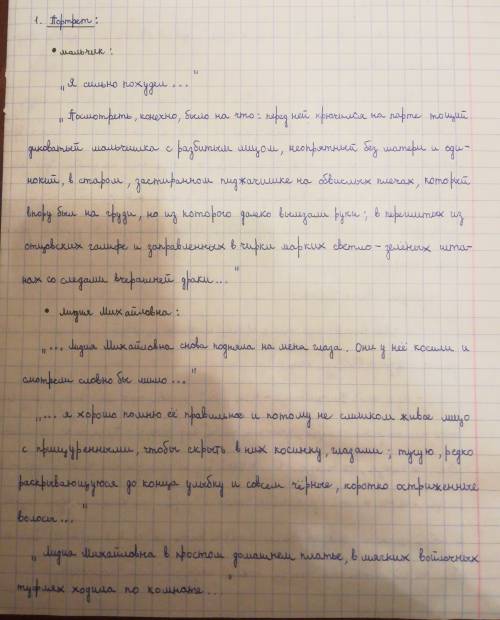 1. Портрет:
• мальчик:
„Я сильно похудел..."
„Посмотреть, конечно, было на что: перед ней крючился на парте тощий
диковатый мальчишка с разбитым лицом, неопрятный без матери и оди-
нокий, в старом, застиранном пиджачишке на обвислых плечах, который
впору был на груди, но из которого далеко вылезали руки; в перешитых из
отцовских галифе и заправленных в чирки марких светло-зеленых шта-
нах со следами вчерашней драки..."
• Лидия Михайловна:
„... Лидия Михайловна снова подняла на меня глаза. Они у неё косили и
смотрели словно бы мимо..."
„... я хорошо помню её правильное и потому не слишком живое лицо
с прищуренными, чтобы скрыть в них косинку, глазами; тугую, редко
раскрывающуюся до конца улыбку и совсем чёрные, коротко остриженные
волосы..."
„Лидия Михайловна в простом домашнем платье, в мягких войлочных
туфлях ходила по комнате..."